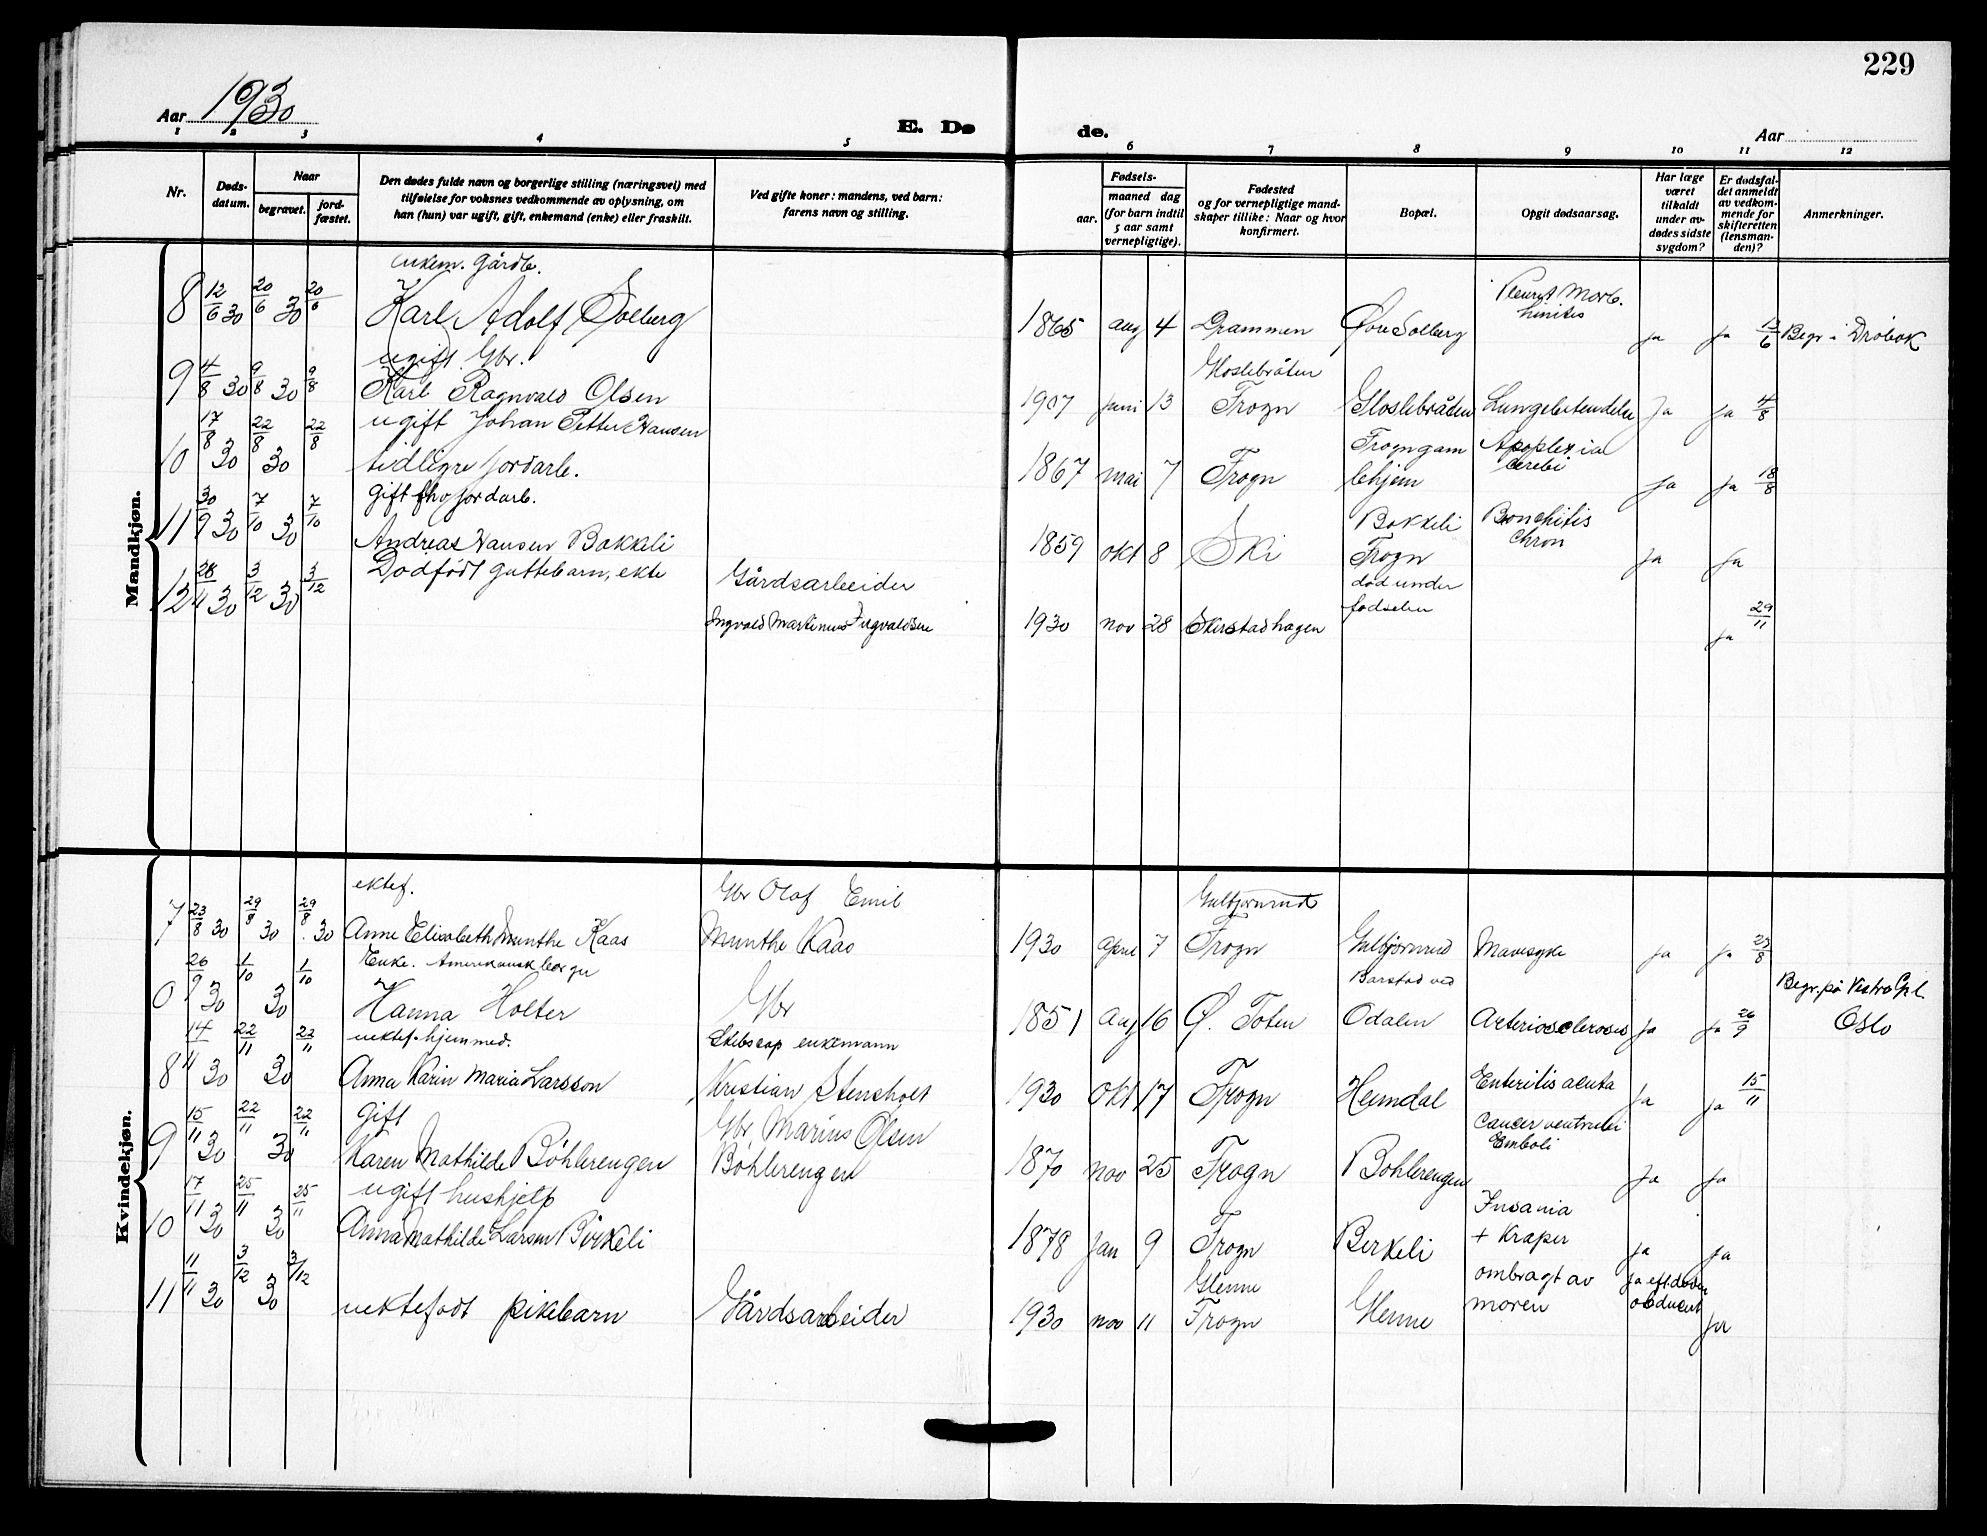 229
Aar 1930
E. Dø
de.
Aar
1 2 3 4 5 6 7 8 9 10 11 12
Nr.
Døds-
datum.
Naar
begravet.
jord-
fæstet.
Den dødes fulde navn og borgerlige stilling (næringsvei) med
tilføielse for voksnes vedkommende av oplysning, om
han (hun) var ugift, gift, enkemand (enke) eller fraskilt.
Ved gifte koner: mandens, ved barn:
farens navn og stilling.
Fødsels-
aar.
maaned dag
(for barn indtil
5 aar samt
vernepligtige).
Fødested
og for vernepligtige mand-
skaper tillike: Naar og hvor
konfirmert.
Bopæl.
Opgit dødsaarsag.
Har læge
været
tilkaldt
under av-
dødes sidste
sygdom?
Er dødsfal-
det anmeldt
av vedkom-
mende for
skifteretten
(lensman-
den)?
Anmerkninger.
Mandkjøn.
enkem. Gårdb.
8 12/6 30 20/6 30 20/6 Karl Adolf Solberg 1865 aug 4 Drammen Øvre Solberg ja ja 13/6 Begr i Drøbak
ugift Gbr. Gloslebråten
9 4/8 30 9/8 30 9/8 Karl Ragnvald Olsen 1907 juni 13 Frogn Gloslebråten Lungebetendelse Ja ja 4/8
ugift Johan Petter Hansen Frogn gam Apoplexia
10 17/8 30 22/8 30 22/8 tidligre jordarb. 1867 mai 7 Frogn lehjem cerebi ja ja 18/8
gift fho jordarb. Bakkeli Bronchitis
11 30/9 30 7/10 30 7/10 Andreas Hansen Bakkeli 1859 okt 8 Ski Frogn Chron ja ja
Dødfødt guttebarn, ekte Gårdsarbeider død under
12 28/11 30 3/12 30 3/12 Ingvald Martinius 1930 nov 28 Skirstadhagen fødselen ja 29/11
Kvindekjøn.
ektef. Gbr Olaf Emil Gulbjørnrud
7 23/8 30 29/8 30 29/8 30 Anne Elisabeth Munthe Kaas Munthe Kaas 1930 april 7 Frogn Gulbjørnrud Mavesyke ja ja 23/8
Enke. Amerikansk borger Barstad ved Begr. på Vestre Gpl.
0 26/9 30 1/10 30 1/10 Hanna Holter Gbr 1851 Aug 16 Ø. Toten Odalen Arteriosclerosis ja ja 26/9 Oslo
uektef. hjemmed. Skibscap enkemann
8 14/11 30 22/11 30 22/11 Anna Karin Maria Larsson Kristian Stensholt 1930 Okt 17 Frogn Heimdal Enteritis acuta ja ja 15/11
gift Gbr. Marius Olsen Cancer ventriculi
9 15/11 30 22/11 30 22/11 Karen Mathilde Bøhlerengen Bøhlerengen 1870 nov 25 Frogn Bøhlerengen Emboli ja ja
ugift hushjelp Insania
10 17/11 30 25/11 30 25/11 Anna Mathilde Larsen Birkeli 1878 Jan 9 Frogn Birkeli + Kraper ja ja
Glenne ombragt av ja eft. døden
11 11/11 30 3/12 30 3/12 uektefødt pikebarn Gårdsarbeider 1930 nov 11 Frogn Glenne moren obducert ja